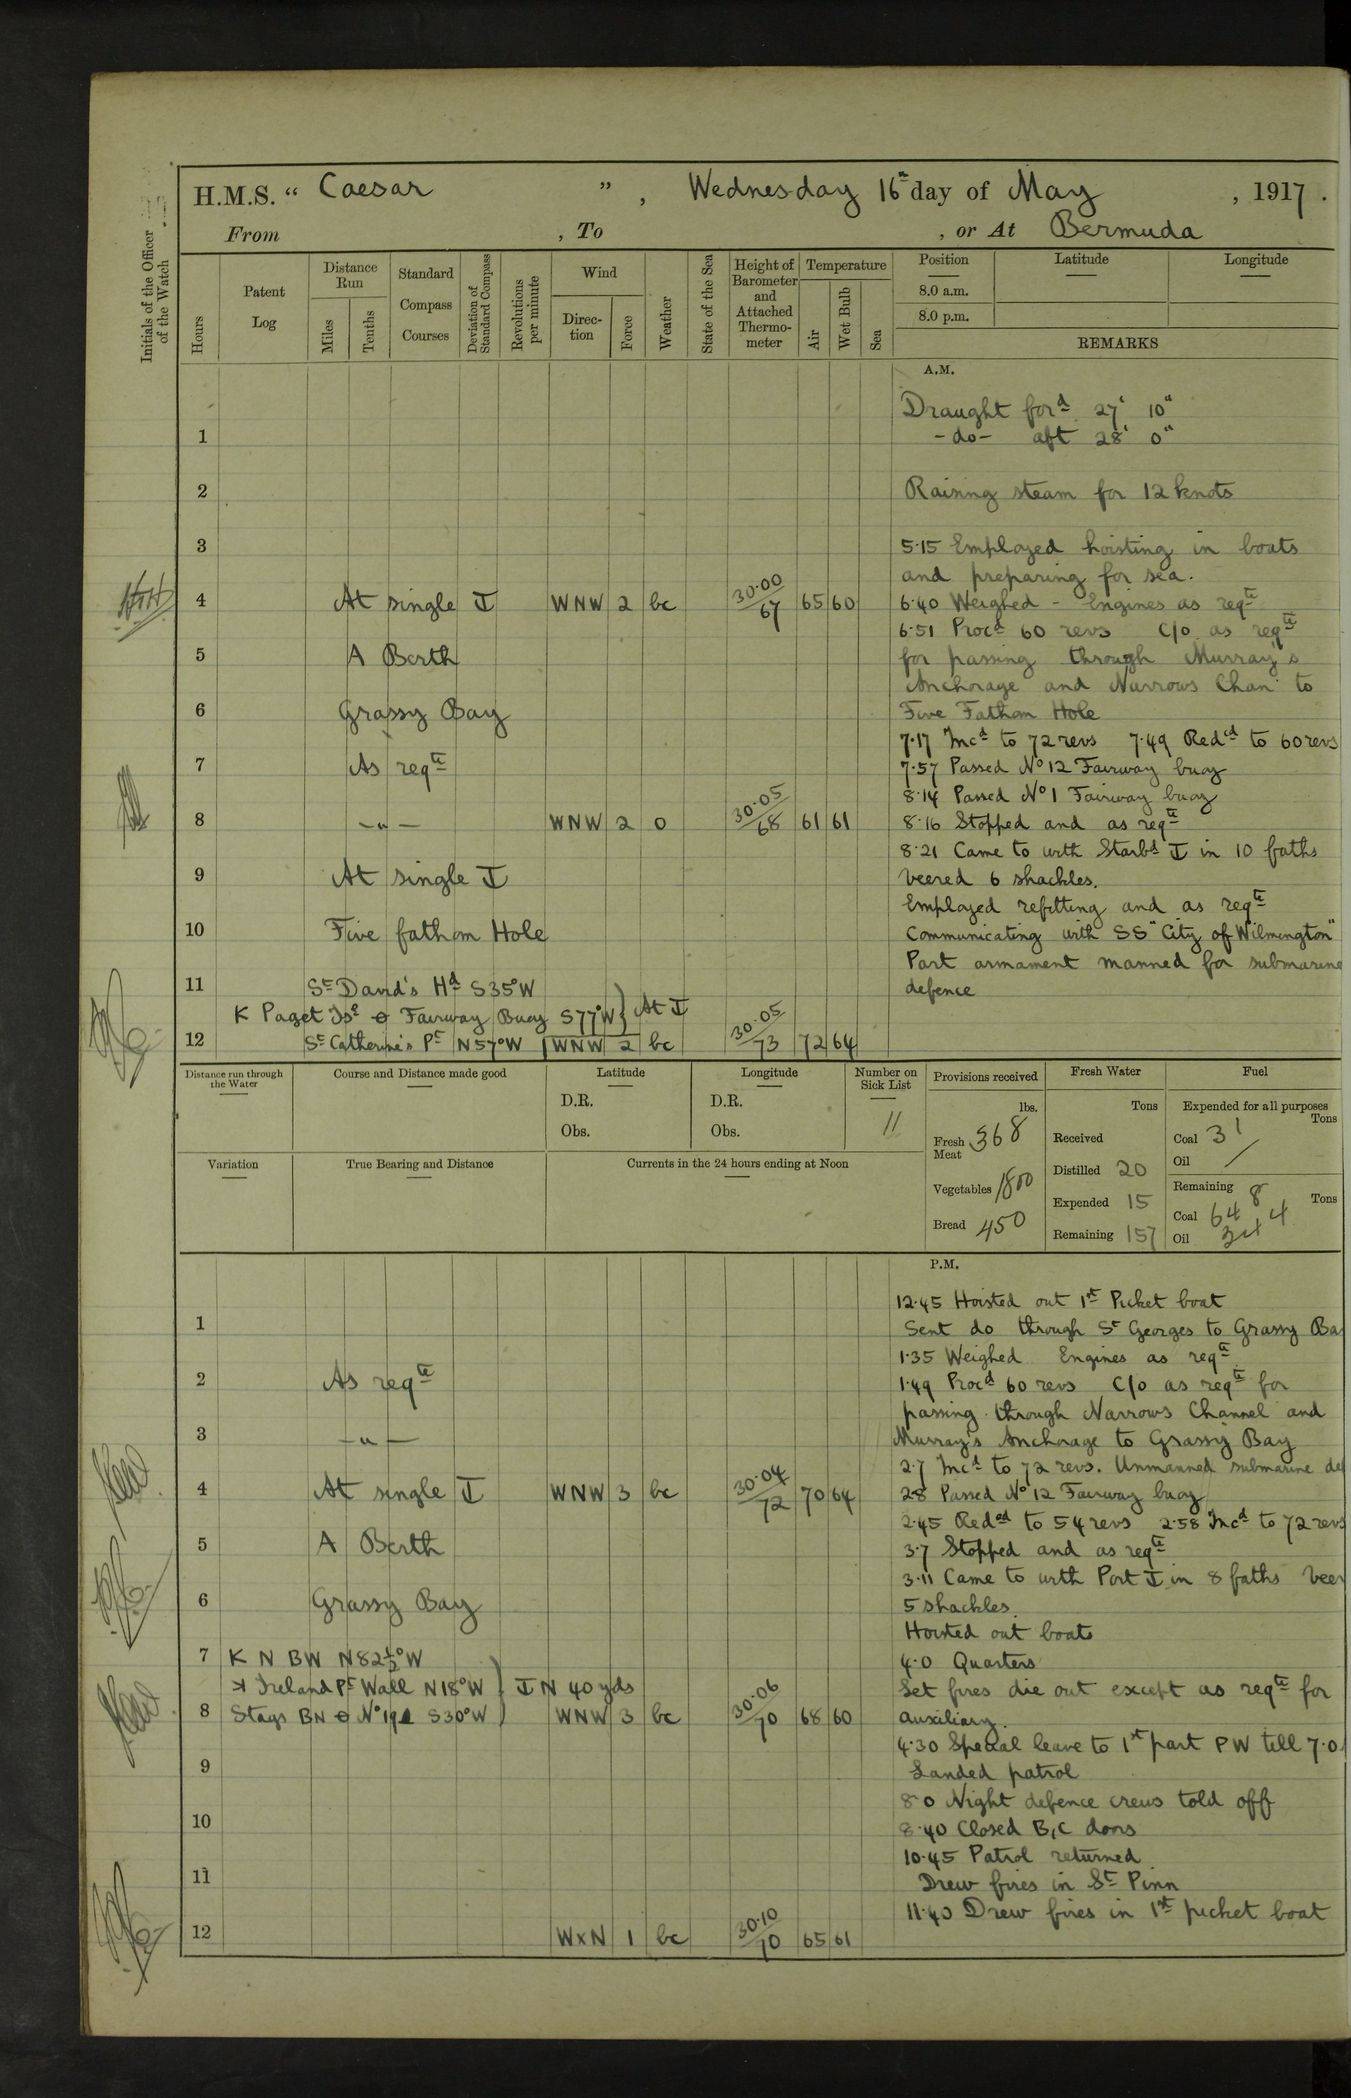 H.M.S. “ Caesar ” , Wednesday 16th day of May , 1917 .
From , To , or At Bermuda
Initials of the Officer of the Watch
Hours
Patent Log
Distance Run
Miles
Tenths
Standard Compass Courses
Deviation of Standard Compass
Revolutions per minute
Wind
Direction
Force
Weather
State of the Sea
Height of Barometer and Attached Thermometer
Temperature
Air
Wet Bulb
Sea
Position
8.0 a.m.
8.0 p.m.
Latitude
Longitude
REMARKS
A.M.
Draught ford 27' 10"
1 - do - aft 28' 0"
2 Raising steam for 12 knots
3 5.15 Employed hoisting in boats
and preparing for sea.
4 At single ⚓ WNW 2 bc 30.00/67 65 60 6.40 Weighed - Engines as reqte
6.51 Procd 60 revs C/o as reqte
5 A Berth for passing through Murray's
Anchorage and Narrows Chan. to
6 Grassy Bay Five Fathom Hole
7.17 Incd to 72 revs 7.49 Redcd to 60 revs
7 As reqte 7.57 Passed No 12 Fairway buoy
8.14 Passed No 1 Fairway buoy
8 - " - WNW 2 o 30.05/68 61 61 8.16 Stopped and as reqte
8.21 Came to with Starbd ⚓ in 10 faths
9 At single ⚓ veered 6 shackles.
Employed refitting and as reqte
10 Five fathom Hole Communicating with SS "City of Wilmington"
Part armament manned for submarine
11 St David's Hd S35°W defence
K Paget Isd ɵ Fairway Buoy S77°W } At ⚓
12 St Catherine's Pt N57°W WNW 2 bc 30.05/73 72 64
Distance run through the Water
Course and Distance made good
Latitude
D.R.
Obs.
Longitude
D.R.
Obs.
Number on Sick List
11
Provisions received
lbs.
Fresh Meat 368
Vegetables 1800
Bread 450
Fresh Water
Tons
Received
Distilled 20
Expended 15
Remaining 157
Fuel
Expended for all purposes
Tons
Coal 31
Oil /
Remaining
Tons
Coal 648
Oil
Variation
True Bearing and Distance
Currents in the 24 hours ending at Noon
P.M.
12.45 Hoisted out 1st Picket boat
1 Sent do through St Georges to Grassy Ba
1.35 Weighed Engines as reqte
2 As reqte 1.49 Procd 60 revs C/o as reqte for
passing through Narrows Channel and
3 - " - Murray's Anchorage to Grassy Bay
2.7 Incd to 72 revs. Unmanned submarine de
4 At single ⚓ WNW 3 bc 30.04/72 70 64 2.8 Passed No 12 Fairway buoy
2.45 Redced to 54 revs 2.58 Incd to 72 revs
5 A Berth 3.7 Stopped and as reqte
3.11 Came to with Port ⚓ in 8 faths Veer
6 Grassy Bay 5 shackles.
Hoisted out boats
7 K N BW N82½°W 4.0 Quarters
Ireland Pt Wall N18°W } ⚓ N 40 yds Let fires die out except as reqte for
8 Stags BN ɵ No 19 S30°W WNW 3 bc 30.06/70 68 60 auxiliary.
4.30 Special leave to 1st part PW till 7.0
9 Landed patrol
8.0 Night defence crews told off
10 8.40 Closed B,C doors
10.45 Patrol returned
11 Drew fires in St Pinn
11.40 Drew fires in 1st picket boat
12 WxN 1 bc 30.10/70 65 61